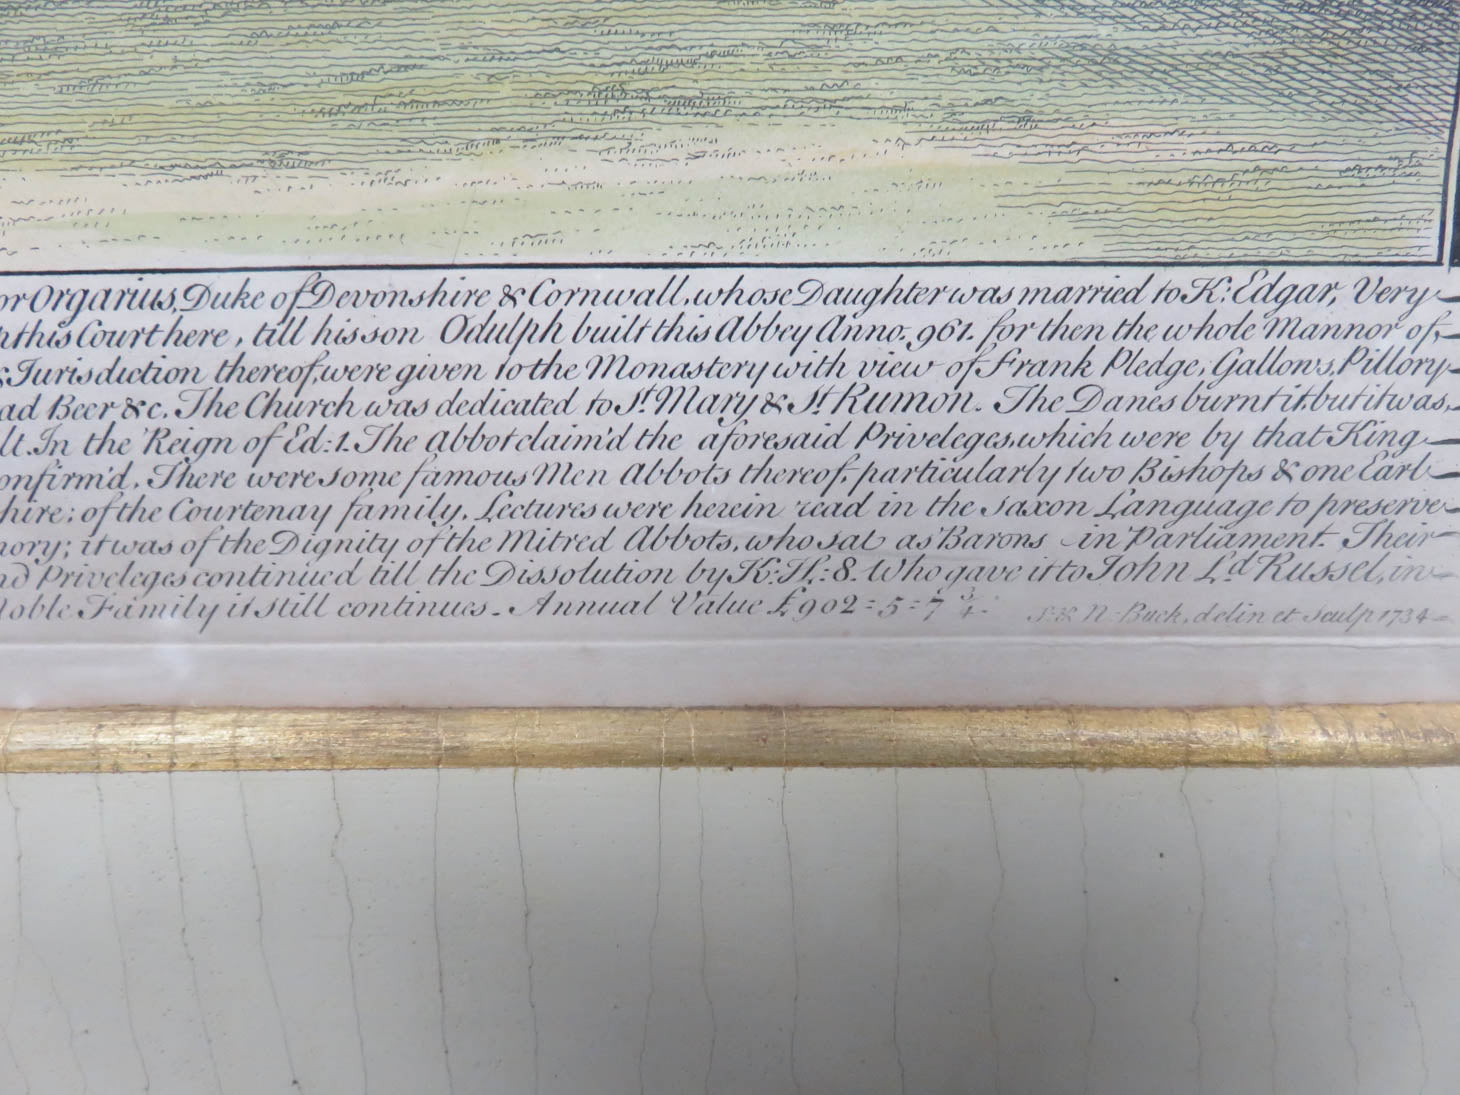 or Orgarius, Duke of Devonshire & Cornwall, whose Daughter was married to K: Edgar, Very
this Court here, till his son Odulph built this Abbey Anno. 961. for then the whole Mannor of,
& Jurisdiction thereof, were given to the Monastery with view of Frank Pledge, Gallows, Pillory
ad Beer &c. The Church was dedicated to St. Mary & St. Rumon. The Danes burnt it, but it was,
lt. In the Reign of Ed: 1. The Abbot claim'd the aforesaid Priveleges, which were by that King
onfirm'd. There were some famous Men Abbots thereof, particularly two Bishops & one Earl
hire; of the Courtenay family. Lectures were herein read in the Saxon Language to preserve
ory; it was of the Dignity of the Mitred Abbots, who sat as Barons in Parliament. Their
nd Priveleges continued till the Dissolution by K: H: 8. Who gave it to John Ld Russel, in
Noble Family it still continues. Annual Value £902=5=7 3/4.
S: & N: Buck, delin et Sculp 1734